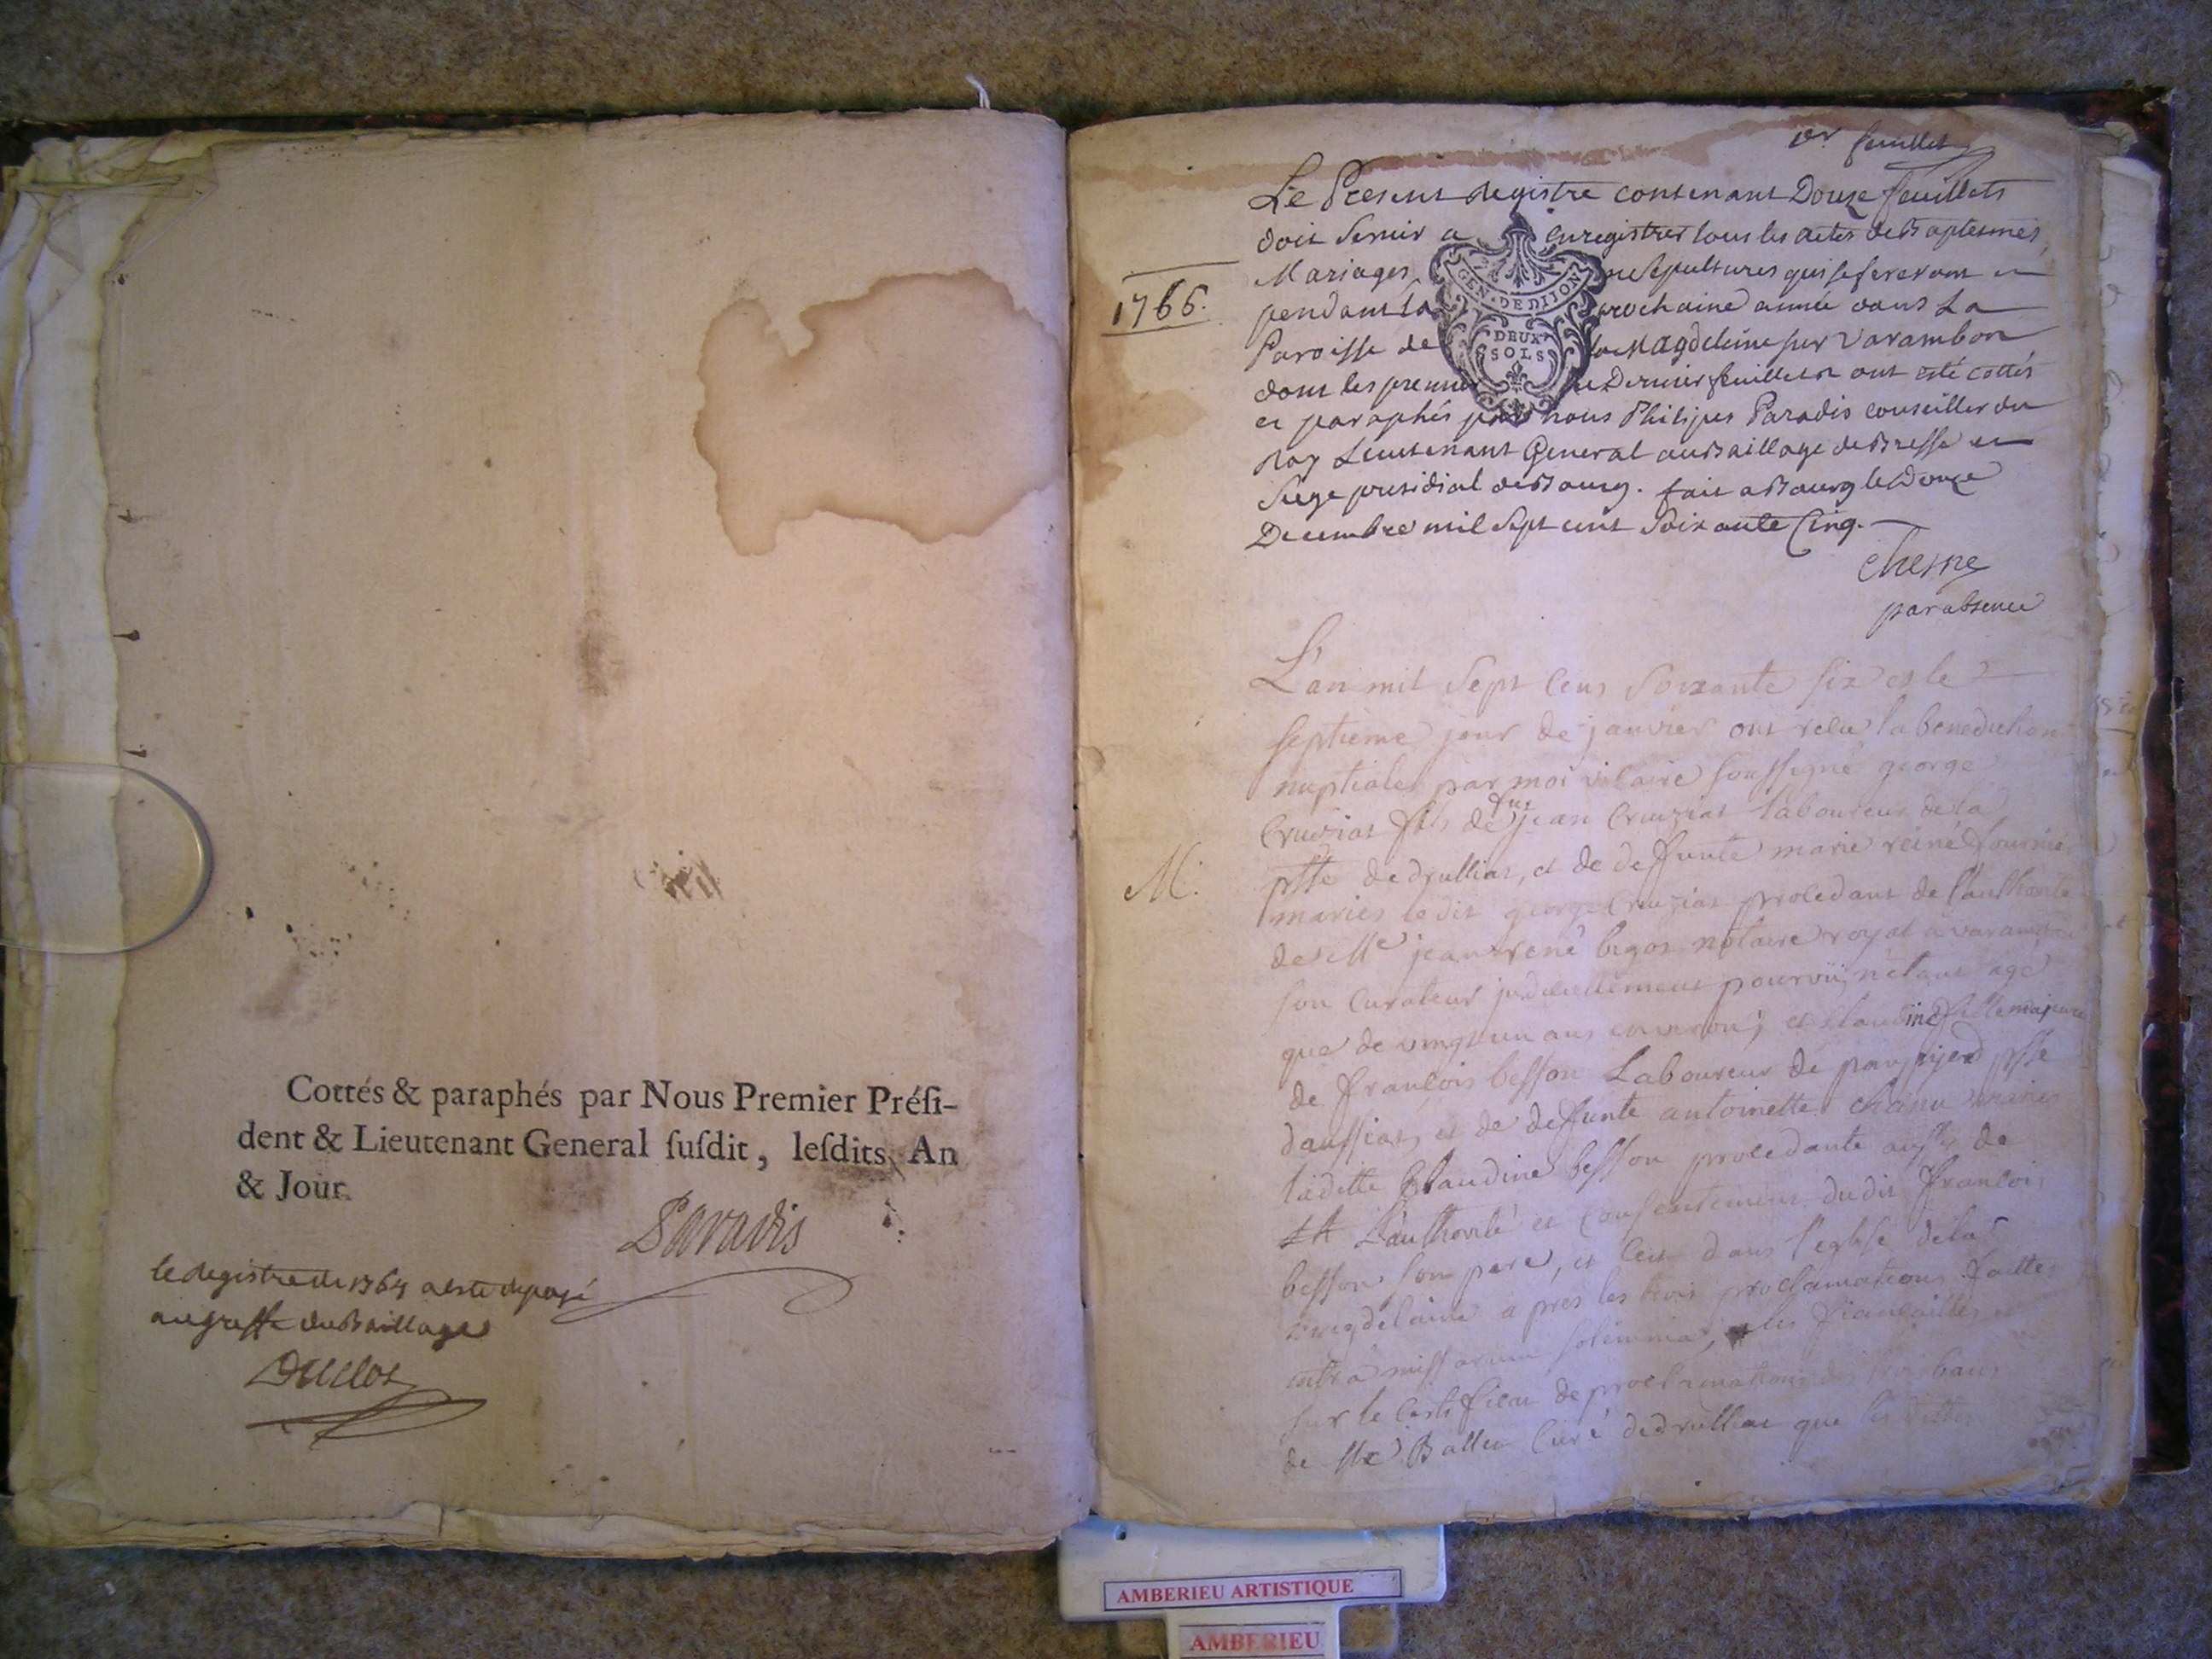 Cottés & paraphés par Nous Premier Préſi-
dent & Lieutenant General ſuſdit, leſdits An
& Jour.
Paradis
le Registre de 1764 a esté deposé
au greffe du Baillage
Duclos
1er feuillet
1766.
Le Present Registre contenant Douze feuillets
doit servir a enregistrer tous les actes de Baptesmes,
Mariages, sepultures qui se fereront
pendant la prochaine année dans La
Paroisse de la Magdeleine sur Varambon
dont les premier et Dernier feuillets ont esté cottés
et paraphés par nous Philipes Paradis conseiller du
Roy Lieutenant General au Baillage de Bresse et
Siege presidial de Bourg. fait a Bourg le Douze
Decembre mil sept cent soixante Cinq.
GEN·DE DIJON
DEUX
SOLS
Chesne
par absence
L'an mil sept cens soixante six et le
septieme jour de janvier ont reçu la benediction
nuptiale par moi vicaire soussigné george
Cruziat fils de fut jean Cruziat laboureur de la
M.
psse de druilliat, et de defunte marie reine
mariés ledit george Cruziat procedant de l'authorité
de Me jean rené bigot notaire royal a
son Curateur pourvü, n'etant agé
que de vingt un ans environ; et Claudine fille majeure
de françois besson Laboureur de psse
et de defunte antoinette mariés
ladite Claudine besson procedante aussy de
L'authorité et consentement dudit françois
besson son pere, et ce dans l'eglise de la
magdelaine apres les trois proclamations faittes
intra missarum solemnia, les fiançailles
sur le Certificat de proclamations bans
de Mre Curé de druilliat que
AMBERIEU ARTISTIQUE
AMBERIEU